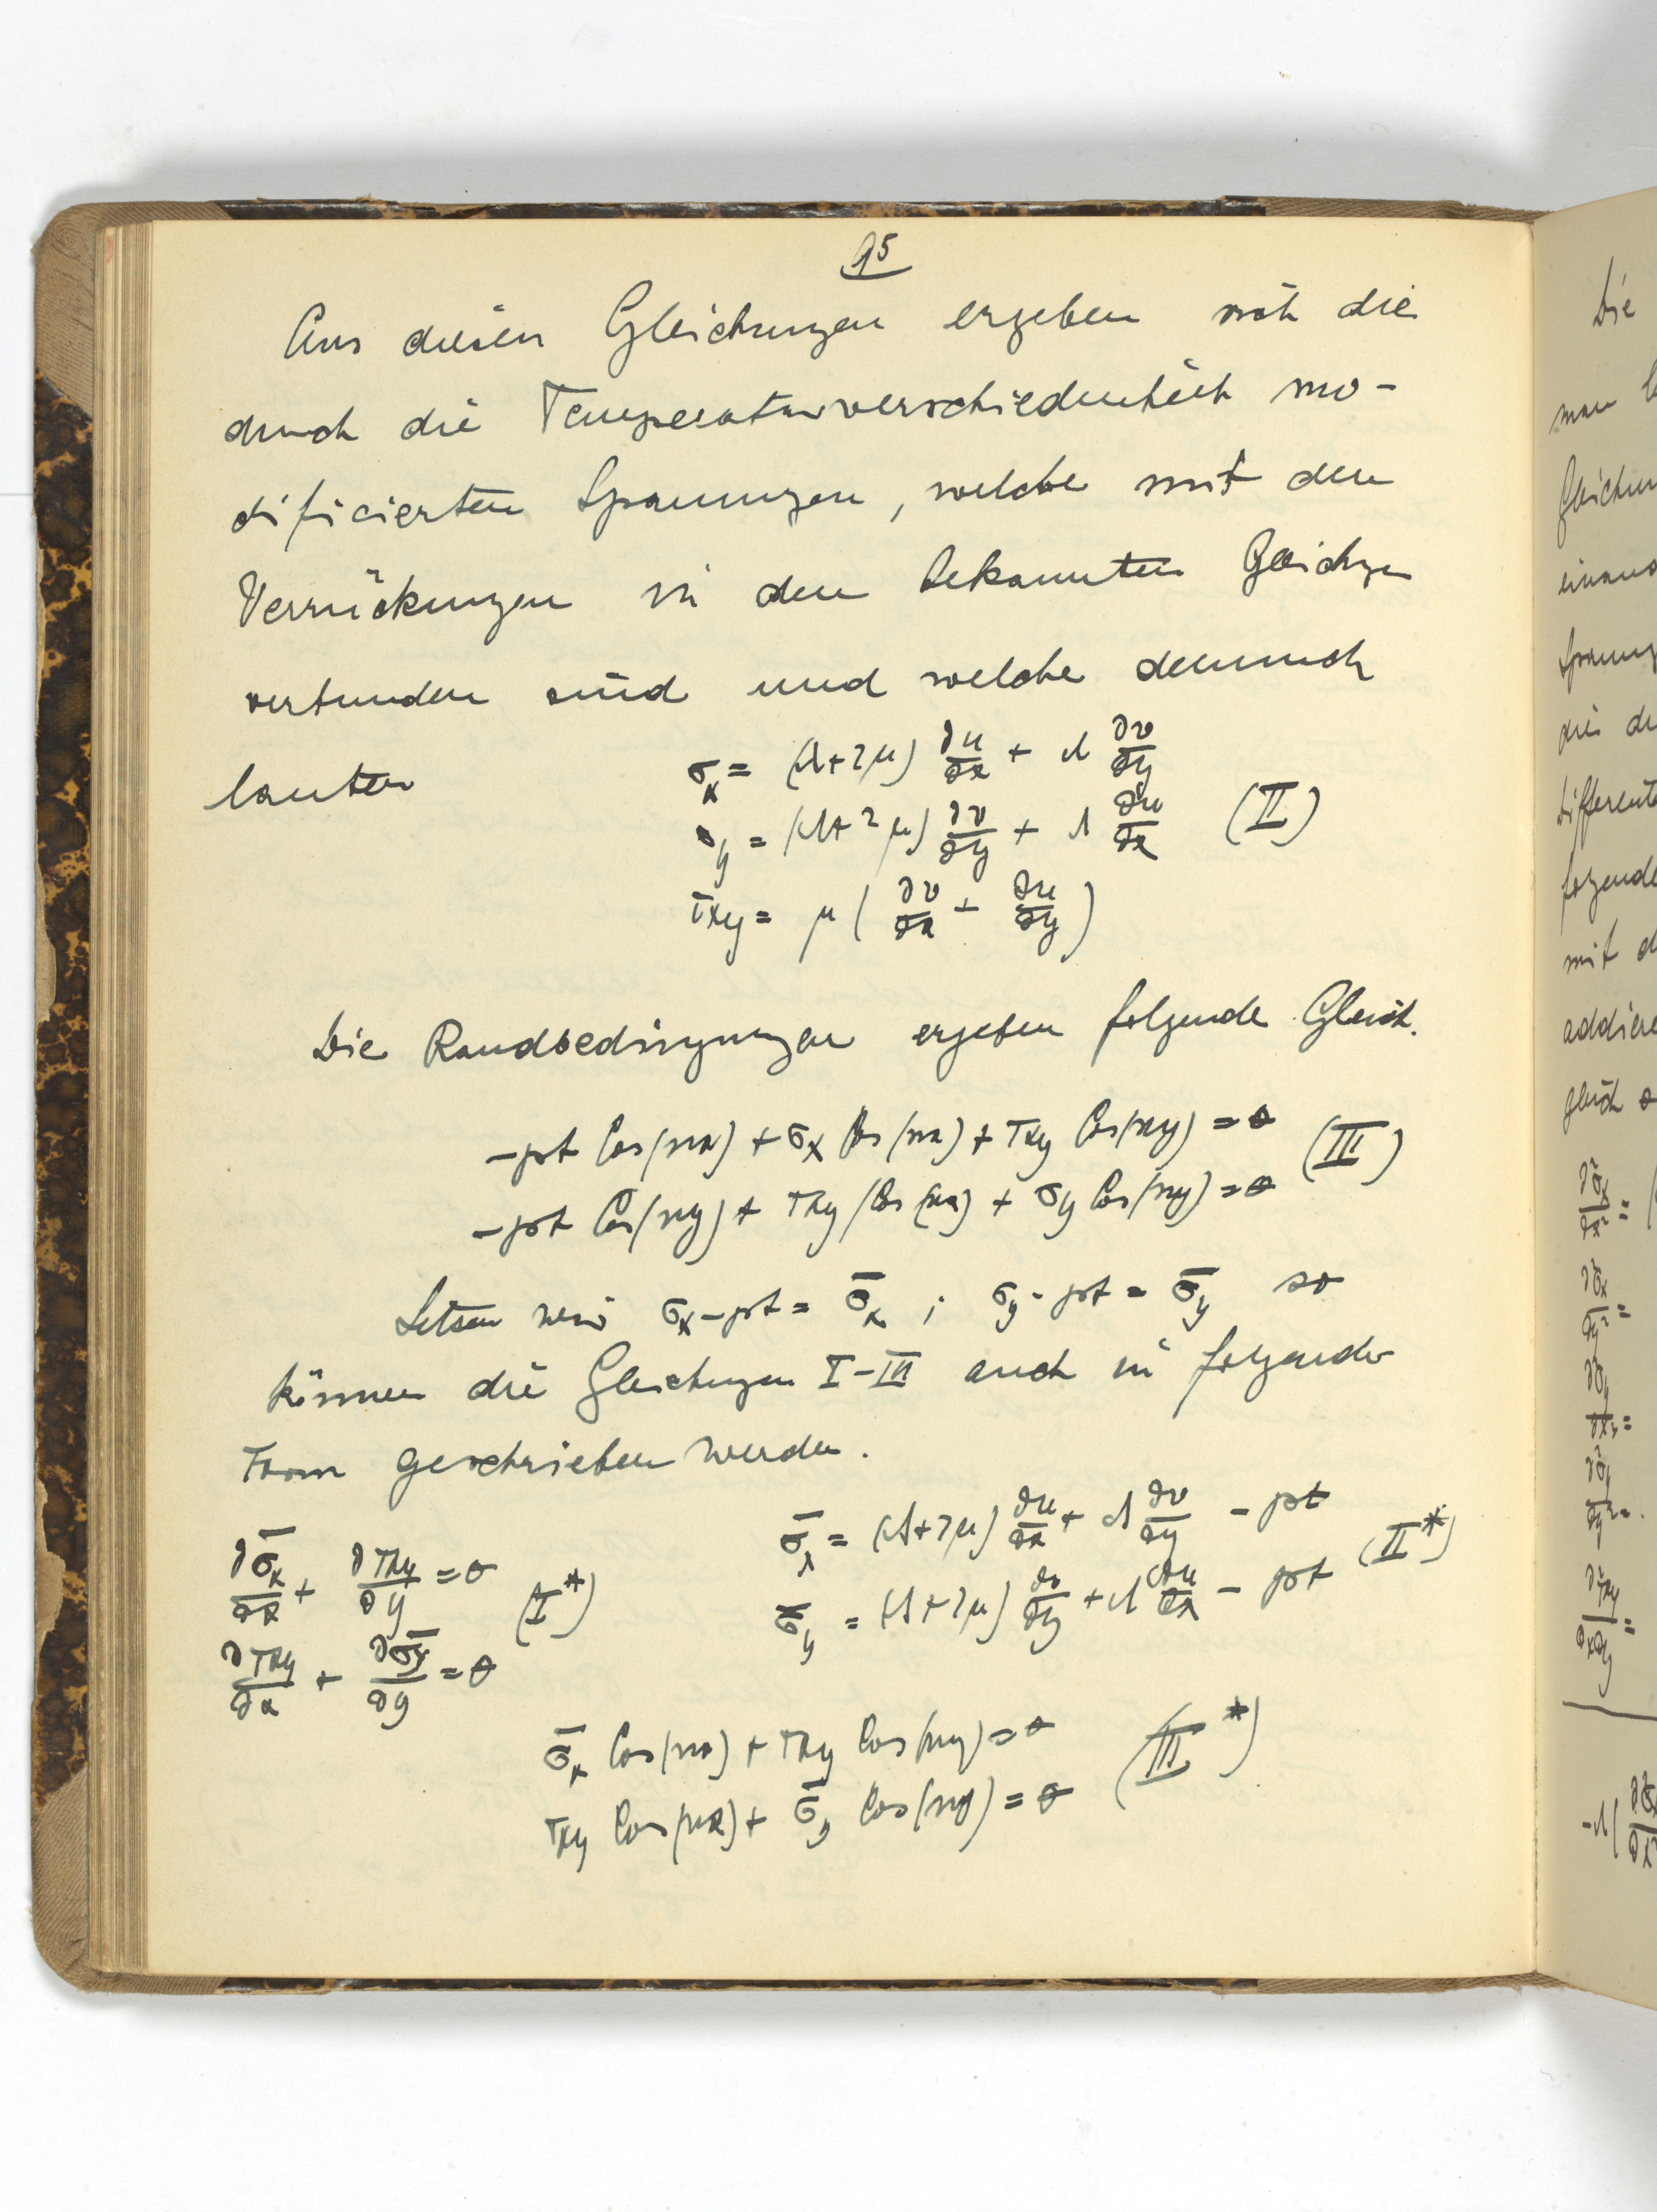 95
Aus diesen Gleichungen ergeben sich die
durch die Temperaturverschiedenheit mo-
dificierten Spannungen, welche mit den
Verrückungen in den bekannten Gleichgn
verbunden sind und welche demnach
lauten
σx = (λ+2μ) ∂u/∂x + λ ∂v/∂y
σy = (λ+2μ) ∂v/∂y + λ ∂u/∂x (II)
τxy = μ ( ∂v/∂x + ∂u/∂y )
Die Randbedingungen ergeben folgende Gleich.
-pt Cos(nx) + σx Cos(nx) + τxy Cos(ny) = 0
-pt Cos(ny) + τxy Cos(nx) + σy Cos(ny) = 0 (III)
Setzen wir σx-pt = σ̄x ; σy-pt = σ̄y so
können die Gleichungen I-III auch in folgender
Form geschrieben werden.
∂σ̄x/∂x + ∂τxy/∂y = 0 (I*)
∂τxy/∂x + ∂σ̄y/∂y = 0
σ̄x = (λ+2μ) ∂u/∂x + λ ∂v/∂y - pt
σ̄y = (λ+2μ) ∂v/∂y + λ ∂u/∂x - pt (II*)
σ̄x Cos(nx) + τxy Cos(ny) = 0
τxy Cos(nx) + σ̄y Cos(ny) = 0 (III*)
Die
man
einand
die
folgende
mit d
addiere
gleich